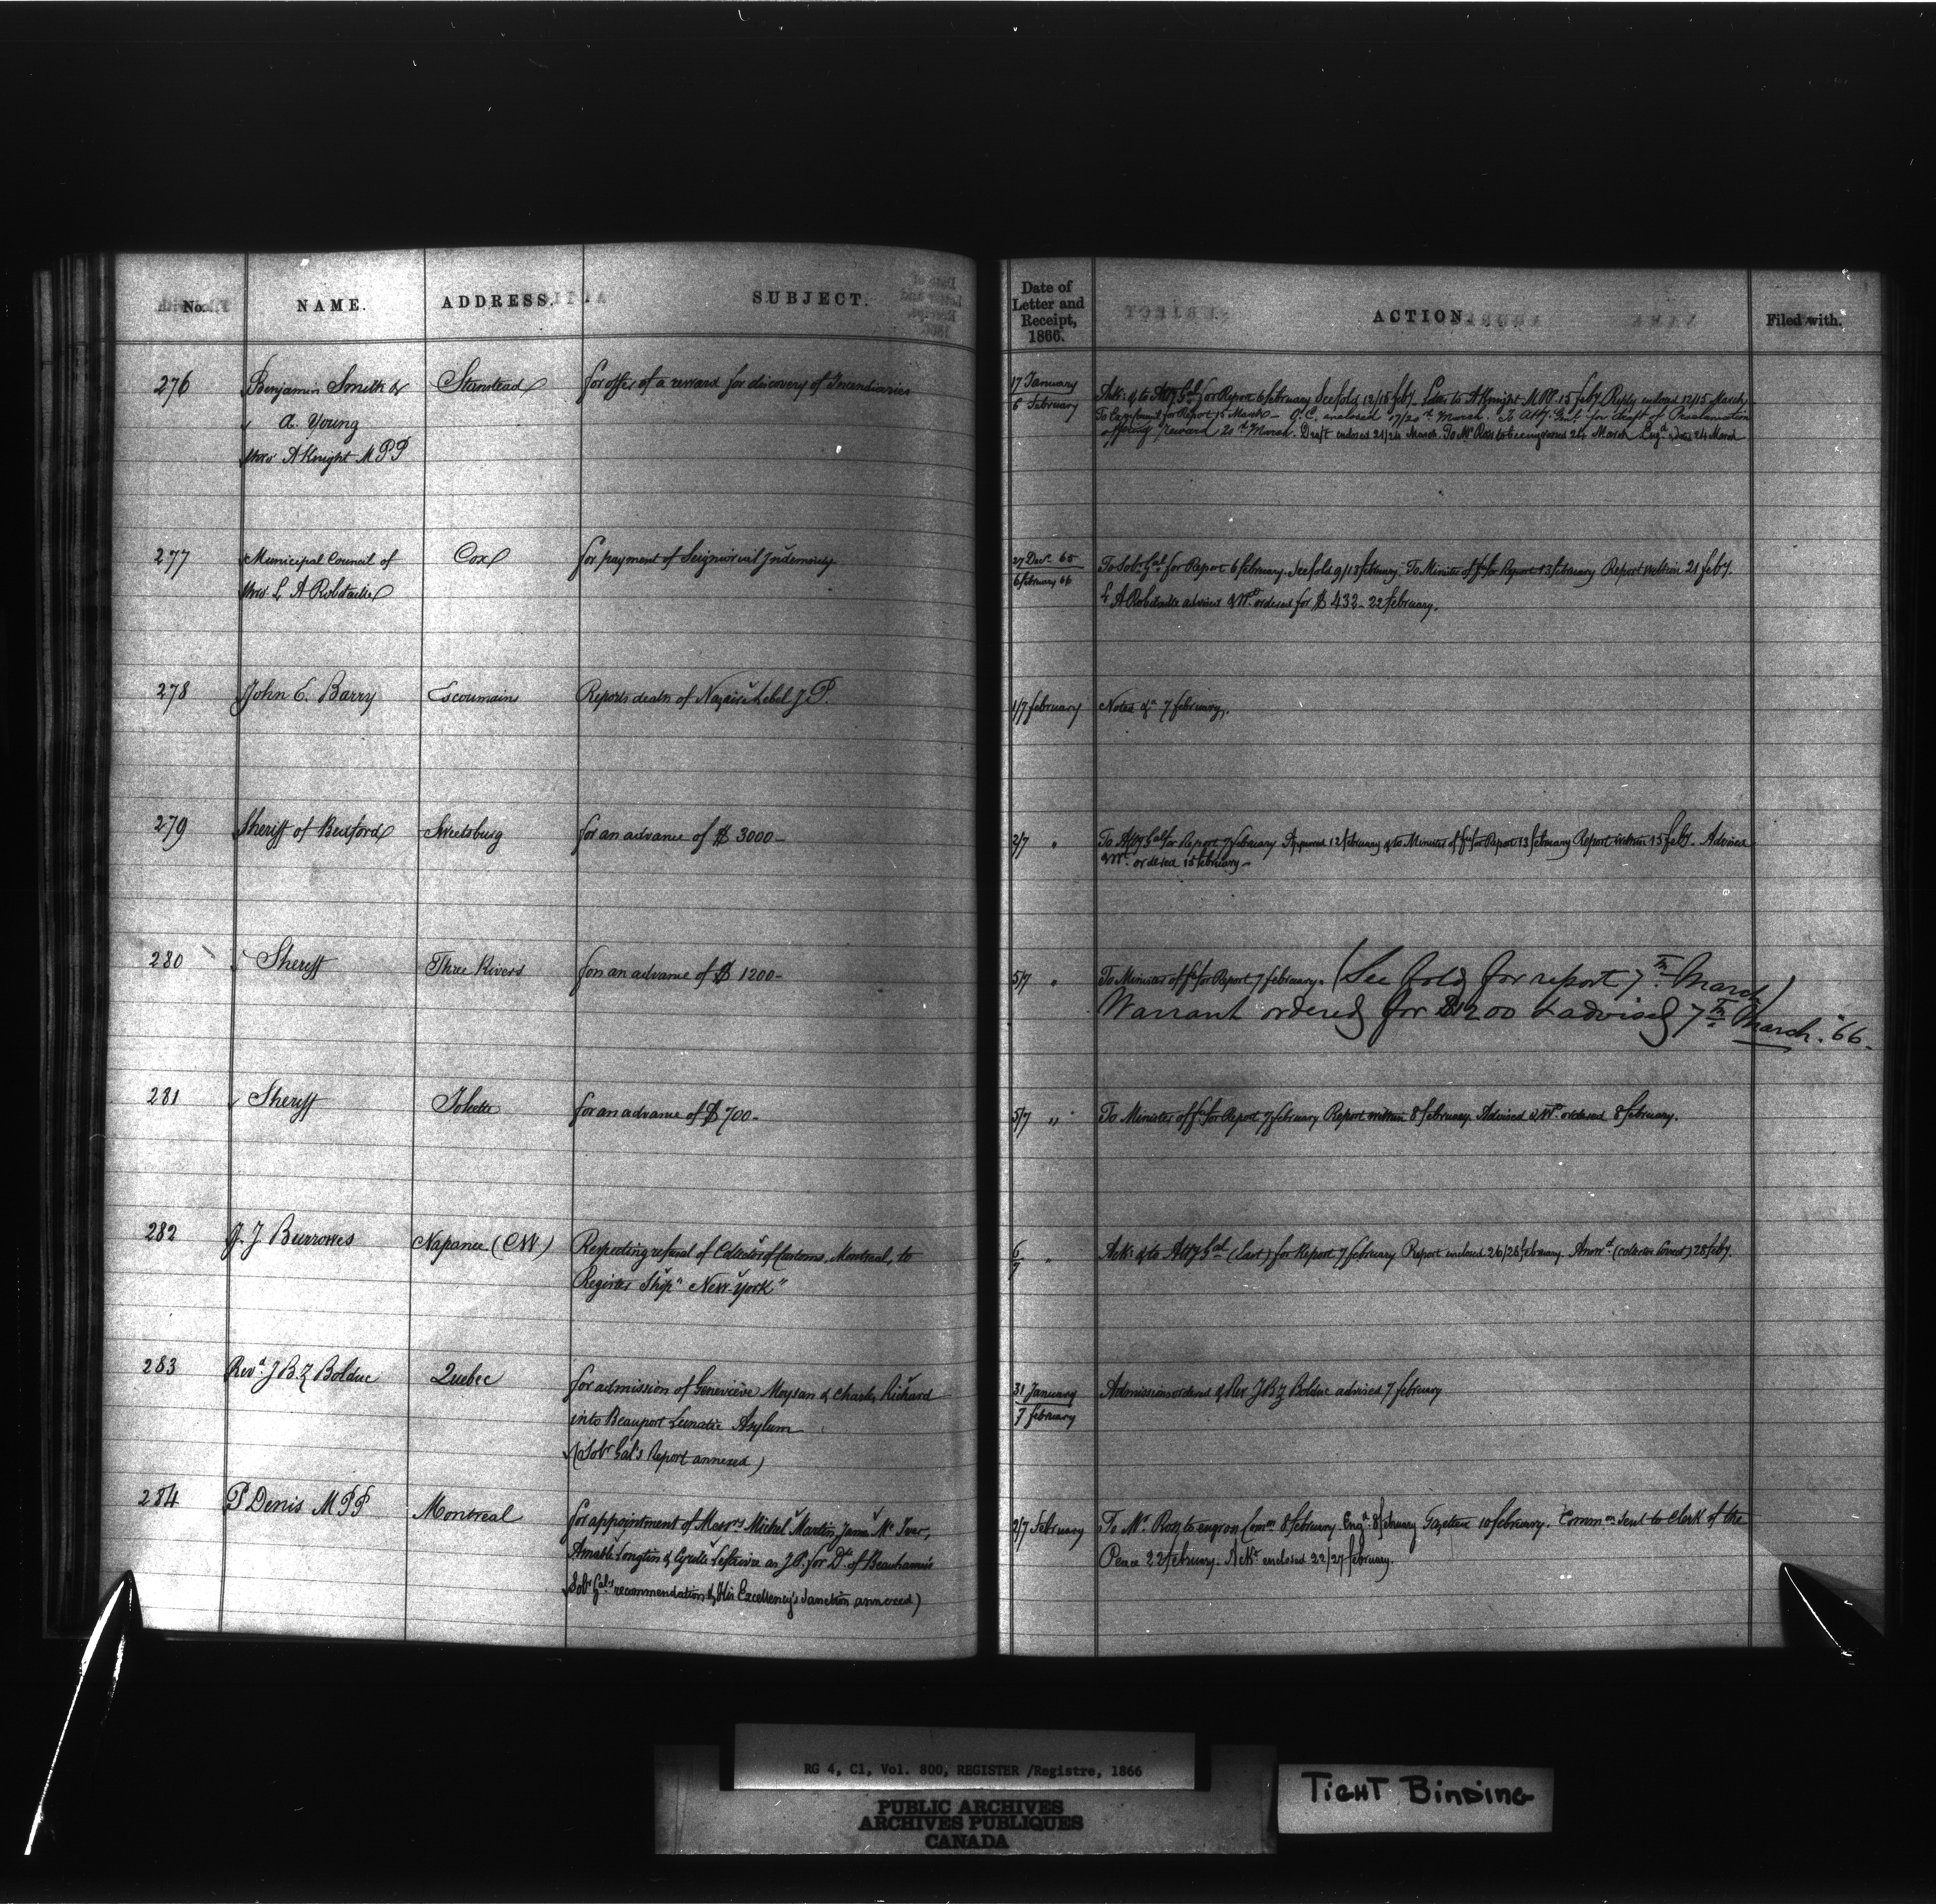 No. NAME. ADDRESS. SUBJECT. Date of Letter and Receipt, 1866. ACTION. Filed with.
276 Benjamin Smith & Stanstead for offer of a reward for discovery of Incendiaries
A. Young
thro' A Knight M P P
17 January
6 February
Ack: & to Atty Gal for Report 6 february See fold 12/15 feby. to A Knight M.P.P. 15 feby Reply enclosed 12/15 March
for Report 15 March - O.C. enclosed 17/20th March. To Atty. Genl. for draft of Proclamation
offering reward 20th March. Draft enclosed 21/24 March. To Mr Ross to be engrossed 24 March Engd. 24 March
277 Municipal Council of Cox for payment of Seigniorial Indemnity
thro' L A Robitaille
27 Decr. 65
6 february 66
To Solr. Gal. for Report 6 february. See fold 9/13 february. To Minister of fce for Report 13 february Report within 21 feby.
L A Robitaille advised & Wt. ordered for $ 432 - 22 february.
278 John E. Barry Escoumains Reports death of Nazaire Lebel J P.
1/7 february Noted &c 7 february.
279 Sheriff of Bedford Sweetsburg for an advance of $ 3000 -
2/7 " To Atty Gal for Report 7 february Approved 12 february & to Minister of fce for Report 13 february Report within 15 feby. Advised
& Wt. ordered 15 february -
280 Sheriff Three Rivers for an advance of $ 1200 -
5/7 " To Minister of fce for Report 7 february. (See fold for report 7th. March)
Warrant ordered for $1200 & advised 7th March. '66.
281 Sheriff Joliette for an advance of $ 700 -
5/7 " To Minister of fce for Report 7 february Report within 8 february. Advised & Wt. ordered 8 february.
282 J. J Burrowes Napanee (CW) Respecting refusal of Collector of Customs, Montreal, to
Register Ship "New-York"
6/7 " Ack: & to Atty Gal (East) for Report 7 february Report enclosed 26/28 february. Answd. 28 feby.
283 Revd. J B. Z Bolduc Quebec for admission of Geneviève Moysan & Charles Richard
into Beauport Lunatic Asylum
(Solr Gal's Report annexed)
31 January
7 february
Admission ordered & Rev J B Z Bolduc advised 7 february
284 P Denis M P P Montreal for appointment of Messrs Michel Martin, James Mc Iver,
Amable Longtin & Cyrille Lefaivre as J P. for Dt. of Beauharnois
Solr Gal's recommendation & His Excellency's Sanction annexed)
2/7 February To Mr. Ross to engross Comon 8 february Engd. 8 february Gazetted 10 february. Common sent to Clerk of the
Peace 22 february. Ackt. enclosed 22/27 february.
RG 4, C1, Vol. 800, REGISTER /Registre, 1866
PUBLIC ARCHIVES
ARCHIVES PUBLIQUES
CANADA
TIGHT BINDING